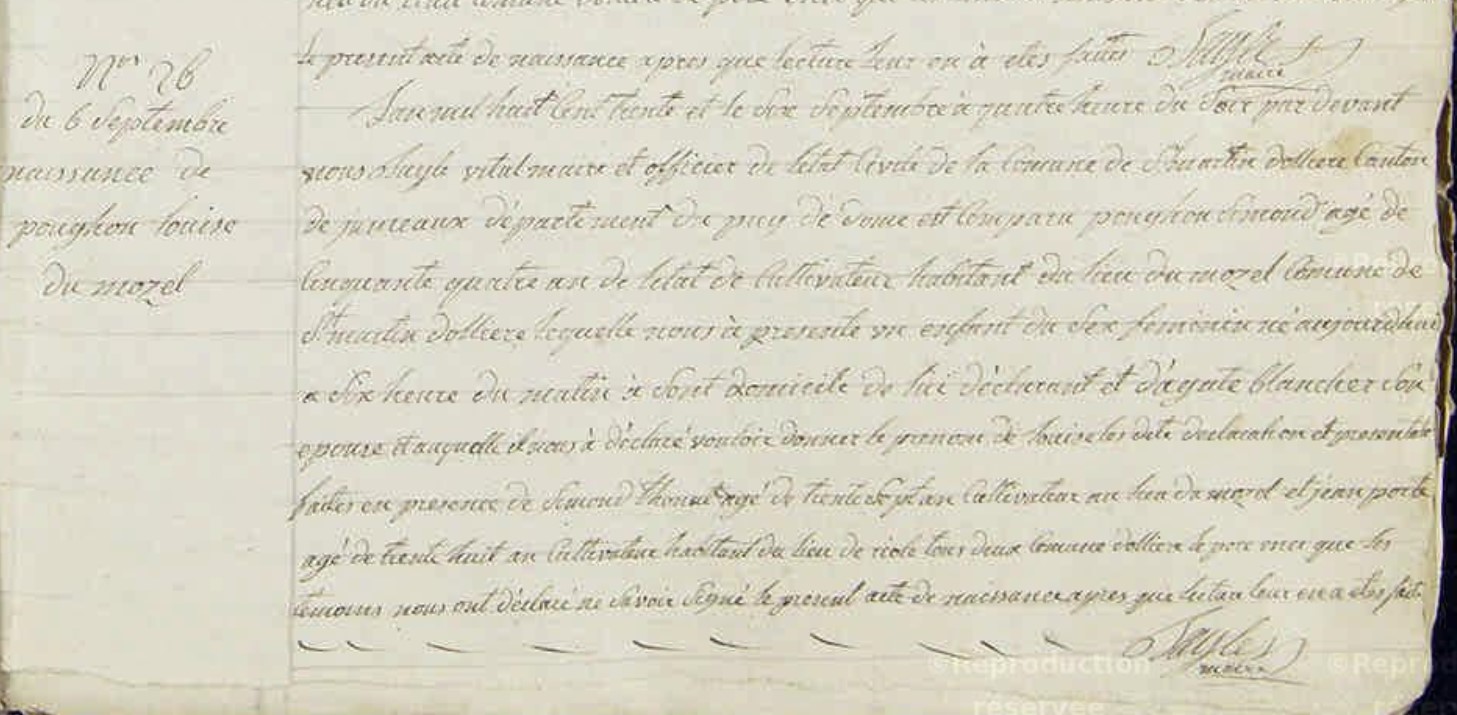 le present acte de naissance apres que lecture leur en à etes faites Sayle
maire
N° 26
du 6 Septembre
naissance de
pouyhon louise
du mozel
Lan mil huit Cent trente et le Six Septembre à quatre heure du Soir par devant
nous Sayle vital maire et officier de letat Civile de la Comune de St martin dolliere Canton
de jumeaux département du puy de dome est Comparu pouyhon Simond agé de
Cinquante quatre an de letat de Cultivateur habitant du lieu du mozel Comune de
St martin dolliere lequelle nous à presente un enfant du Sex feminin né aujourdhui
a Six heure du matin à Sont domicile de lui déclarant et d'agate blancher Son
epouse et auquelle il nous à déclaré vouloir donner le prenom de louise les dite declaration et presentate
faites en presence de Simond agé de trente Sept an Cultivateur au lieu du mozel et jean porte
agé de trente huit an Cultivateur habitant du lieu de riole tous deux Comune dolliere le pere que les
temoins nous ont déclaré ne Savoir Signé le present acte de naissance apres que lecture leur en a etes fait
Sayle
maire
©Reproduction
réservée